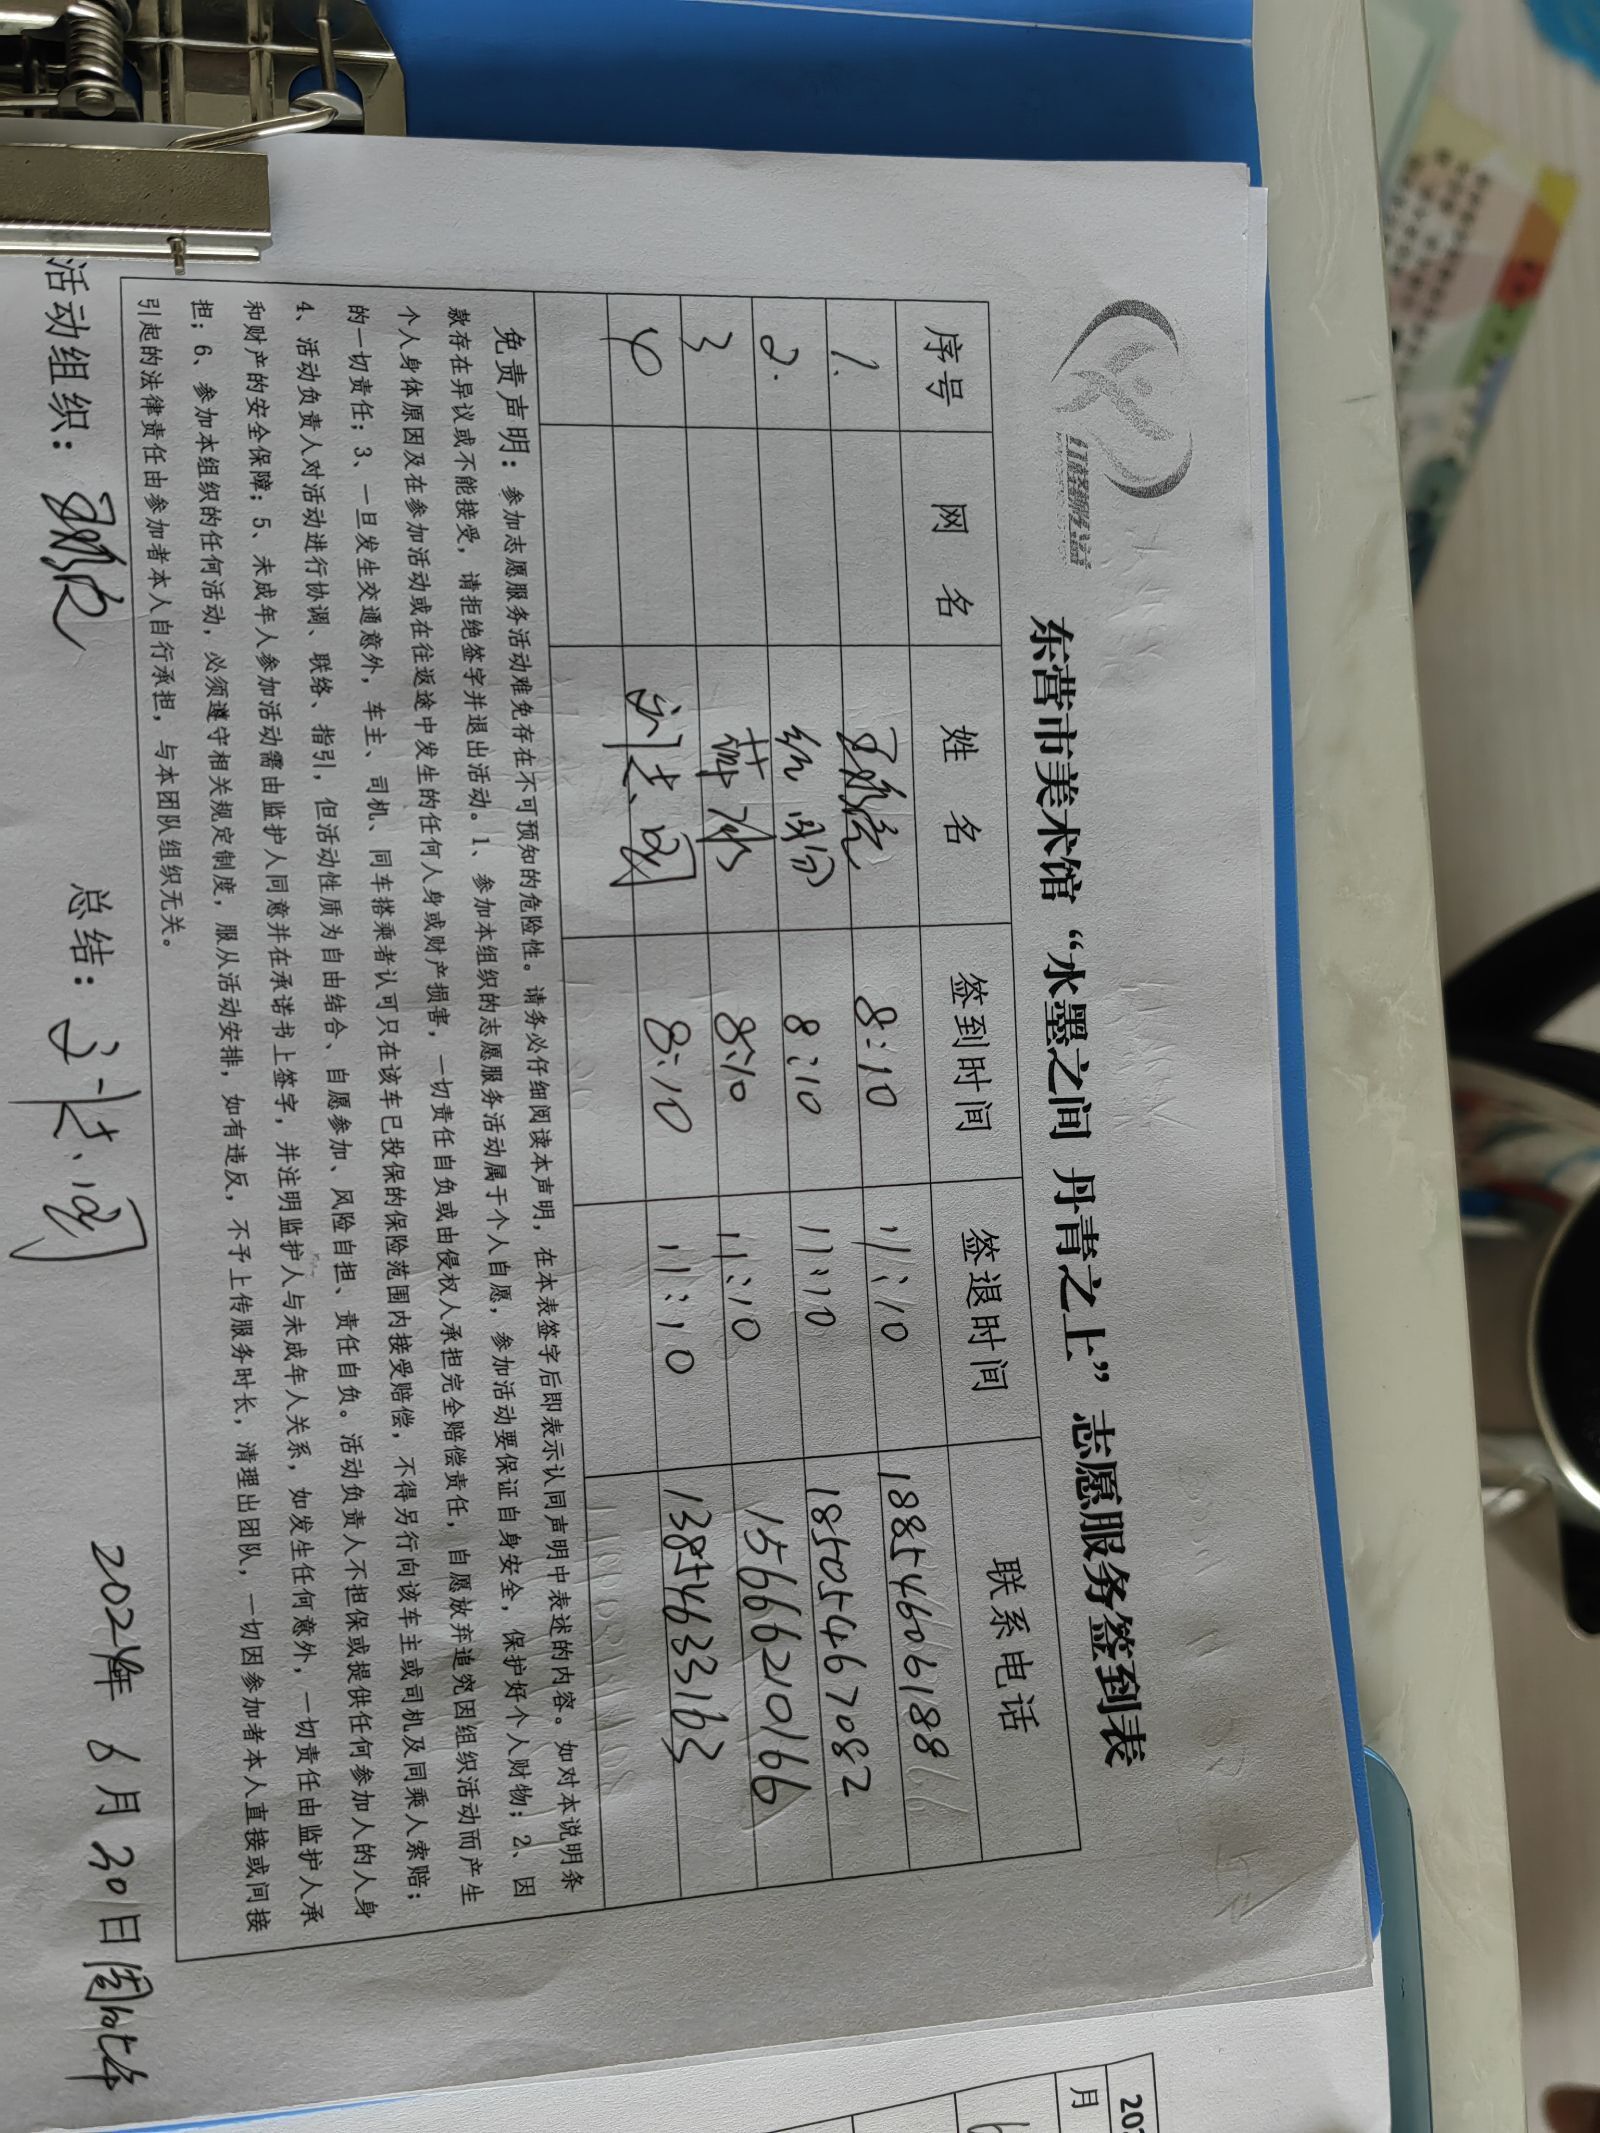 东营市美术馆“水墨之间 丹青之上”志愿服务签到表
序号 网 名 姓 名 签到时间 签退时间 联系电话
1. 8:10 11:10 18854606188
2. 8:10 11:10 18505467082
3 8:10 11:10 15666210166
4 8:10 11:10 13854633163
免责声明：参加志愿服务活动难免存在不可预知的危险性。请务必仔细阅读本声明，在本表签字后即表示认同声明中表述的内容。如对本说明条
款存在异议或不能接受，请拒绝签字并退出活动。1、参加本组织的志愿服务活动属于个人自愿，参加活动要保证自身安全，保护好个人财物；2、因
个人身体原因及在参加活动或在往返途中发生的任何人身或财产损害，一切责任自负或由侵权人承担完全赔偿责任，自愿放弃追究因组织活动而产生
的一切责任；3、一旦发生交通意外，车主、司机、同车搭乘者认可只在该车已投保的保险范围内接受赔偿，不得另行向该车主或司机及同乘人索赔；
4、活动负责人对活动进行协调、联络、指引，但活动性质为自由结合、自愿参加、风险自担、责任自负。活动负责人不担保或提供任何参加人的人身
和财产的安全保障；5、未成年人参加活动需由监护人同意并在承诺书上签字，并注明监护人与未成年人关系，如发生任何意外，一切责任由监护人承
担；6、参加本组织的任何活动，必须遵守相关规定制度，服从活动安排，如有违反，不予上传服务时长，清理出团队，一切因参加者本人直接或间接
引起的法律责任由参加者本人自行承担，与本团队组织无关。
活动组织： 总结： 2024年 6月 30日
月